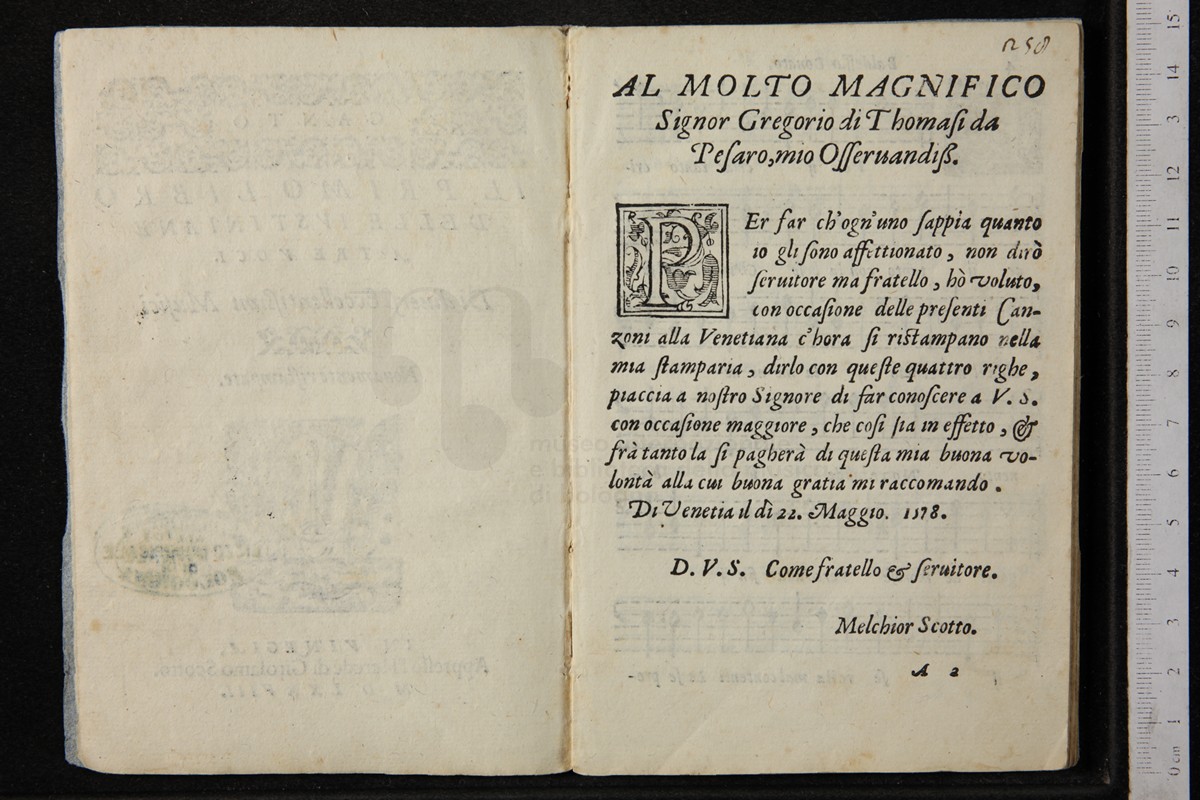 1258
AL MOLTO MAGNIFICO
Signor Gregorio di Thomaſi da
Peſaro, mio Oſſeruandiß.
PEr far ch'ogn'uno ſappia quanto
io gli ſono affettionato, non dirò
ſeruitore ma fratello, hò voluto,
con occaſione delle preſenti Can-
zoni alla Venetiana c'hora ſi riſtampano nella
mia ſtamparia, dirlo con queſte quattro righe,
piaccia a noſtro Signore di far conoſcere a V. S.
con occaſione maggiore, che coſi ſia in effetto, &
frà tanto la ſi pagherà di queſta mia buona vo-
lontà alla cui buona gratia mi raccomando.
Di Venetia il dì 22. Maggio. 1578.
D. V. S. Come fratello & ſeruitore.
Melchior Scotto.
A 2
CANTO
IL PRIMO LIBRO
DELLE IVSTINIANE
A TRE VOCI.
Nouamente riſtampate.
IN VINEGIA,
Appreſſo l'Herede di Girolamo Scotto.